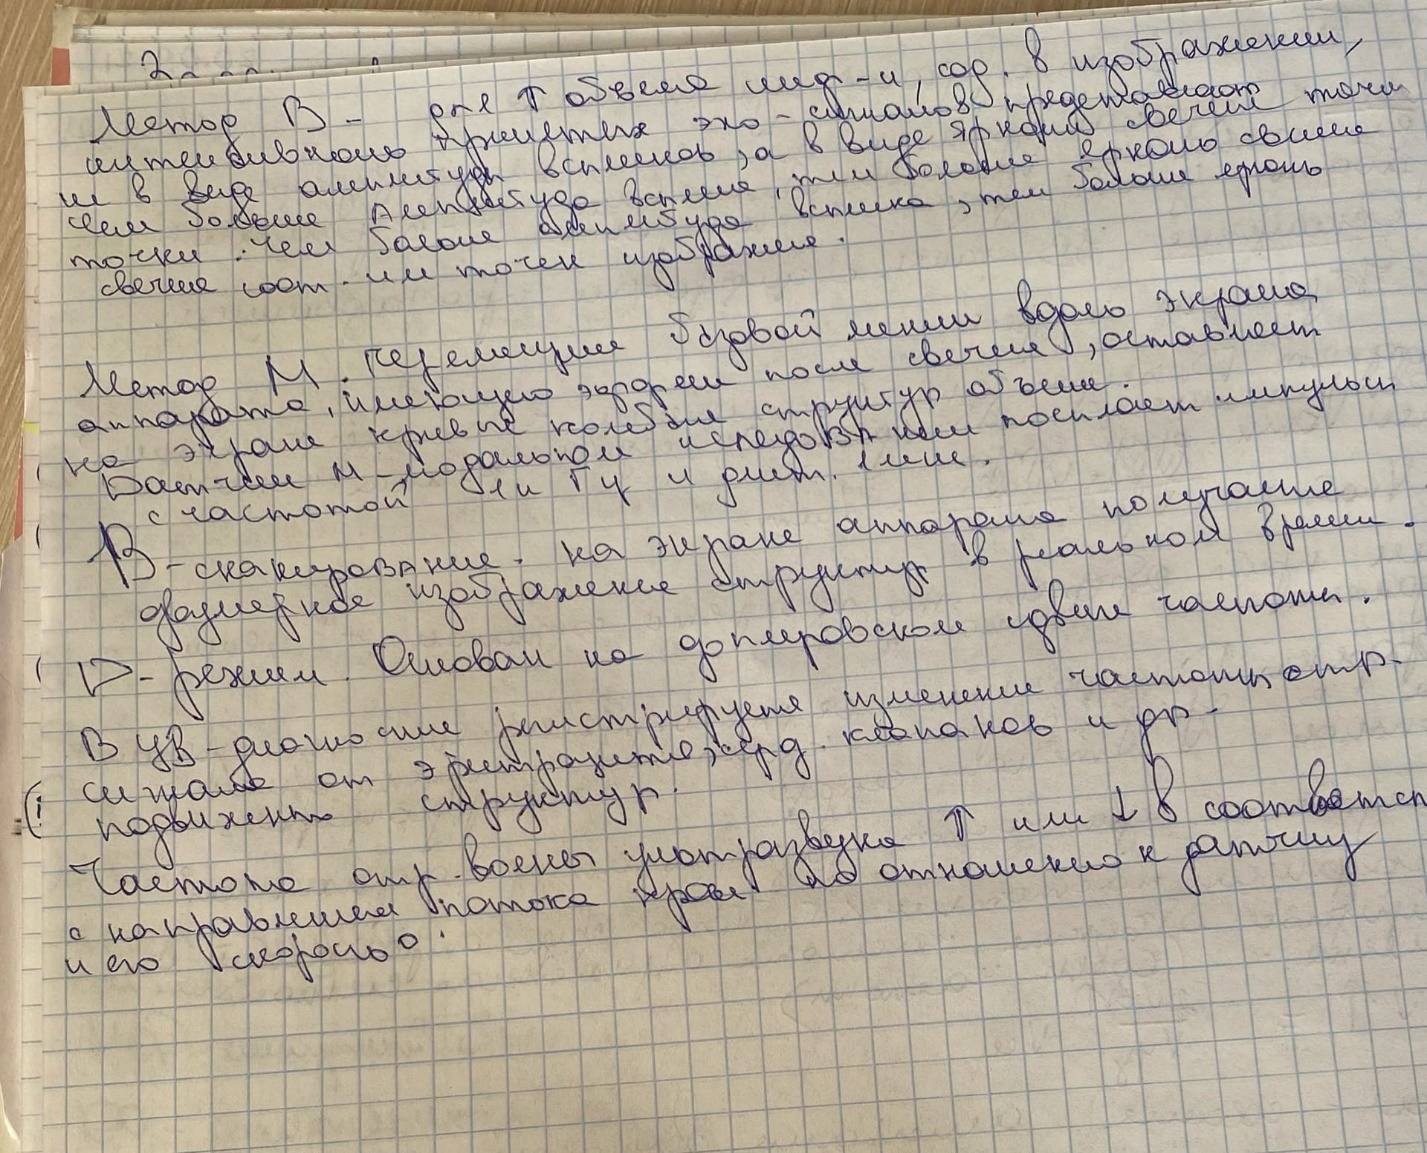 Метод В - для ↑ объема инф-и, сод. в изображении,
интенсивность принятых эхо-сигналов представляют
не в виде амплитуды всплесков, а в виде яркости свечен точки
чем больше Амплитуда всплеска, тем больше яркость свечен
точки. Чем больше амплитуда всплеска, тем больше яркость
свечен соот-ил точек изображен.
Метод М. Перемещен базовой линии вдоль экрана
аппарата, имеющего эффект после свечен, оставляет
на экране кривые колебан структур объема.
Датчик М-модальном исследовании посылает импульсы
с частотой 1к Гц и длит. 1 мк.
В-сканирование. на экране аппарата получаете
двумерное изображение структур в реальном времен.
D-режим. Основан на доплеровском сдвиге частоты.
В УВ-диагностике регистрируется изменение частоты отр.
сигнала от эритроцитов, серд. клапанов и др.
подвижных структур.
Частота отр. волны ультразвука ↑ или ↓ в соответст
с направлением потока крови по отношению к датчику
и его скоростью.